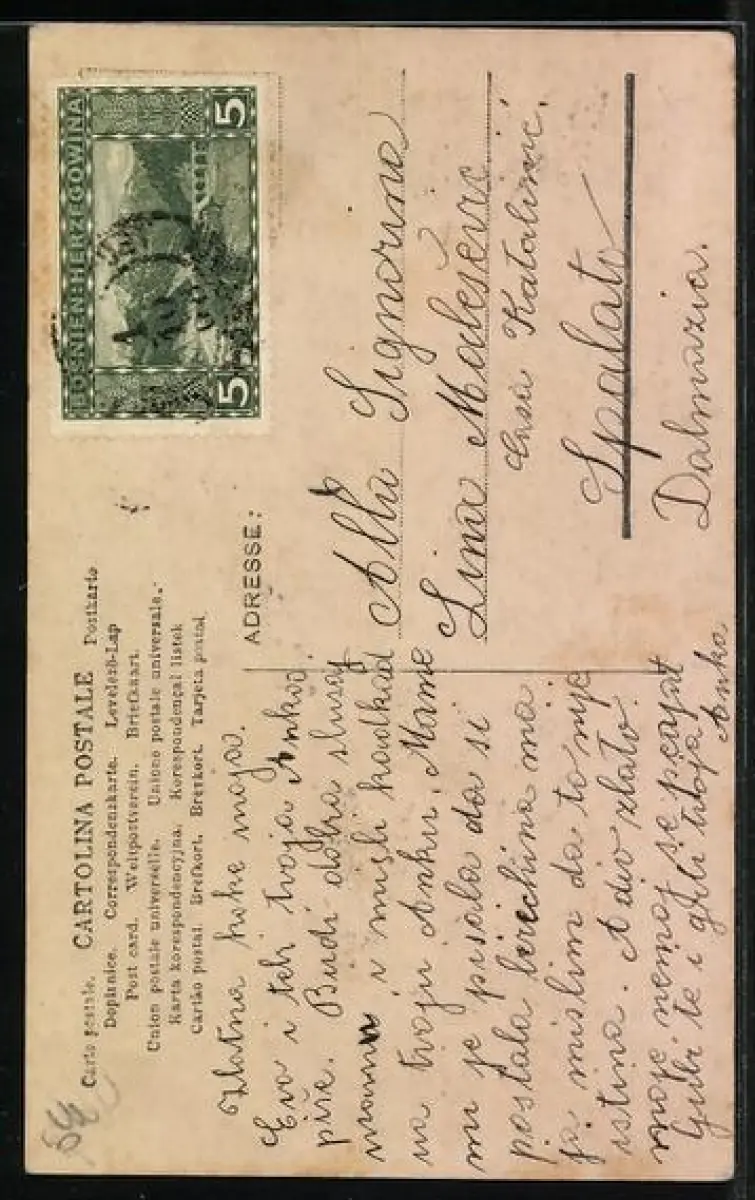 Carte postale. CARTOLINA POSTALE Postkarte
Dopisnice. Correspondenzkarte. Levelező-Lap
Post card. Weltpostverein. Briefkaart.
Union postale universelle. Unione postale universale.
Karta korespondencyjna. Korespondenčal listek
Cartão postal. Brefkort. Brevkort. Tarjeta postal
BOSNIEN HERZEGOWINA
5
5
ADRESSE:
Zlatna keke moja.
Evo i tebi tvoja Anka
piše. Budi dobra slušaj
mamu i misli kadkad
na tvoju Anku. Mame
mi je pisala da si
postala birichina ma
ja mislim da to nije
istina. Adio zlato
moje nemoj se
Ljubi te i grli tvoja Anka
Alla Signorina
Lina Malešević
Casa Katalinić.
Spalato
Dalmazia.